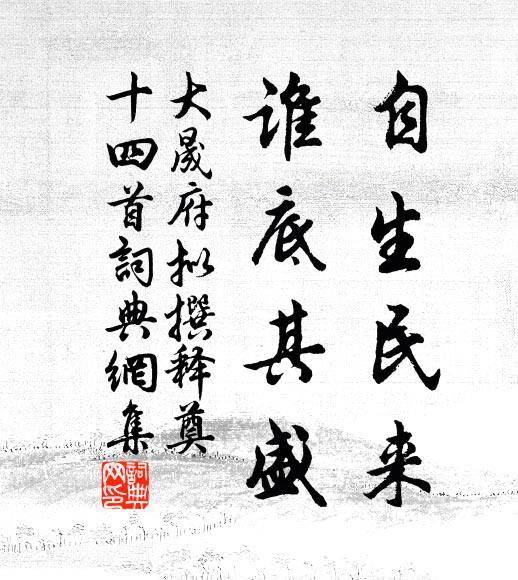 自生民来
谁底其盛
大晟府拟撰释奠
十四首詞典網集
詞典网印